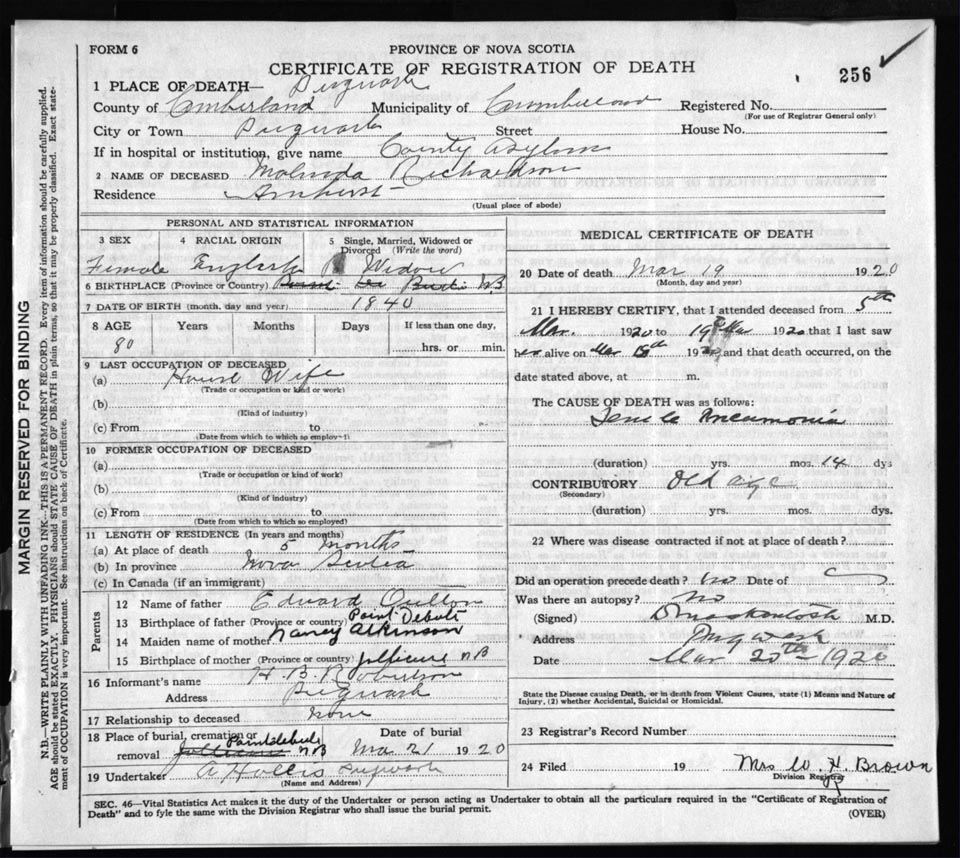 FORM 6
PROVINCE OF NOVA SCOTIA
CERTIFICATE OF REGISTRATION OF DEATH
256
1 PLACE OF DEATH— Pugwash
County of Cumberland Municipality of Cumberland Registered No.
(For use of Registrar General only)
City or Town Pugwash Street House No.
If in hospital or institution, give name County Asylum
2 NAME OF DECEASED Malinda Richardson
Residence Amherst
(Usual place of abode)
PERSONAL AND STATISTICAL INFORMATION
3 SEX 4 RACIAL ORIGIN 5 Single, Married, Widowed or Divorced (Write the word)
Female English Widow
6 BIRTHPLACE (Province or Country) N.B
7 DATE OF BIRTH (month, day and year) 1840
8 AGE Years Months Days If less than one day,
80 hrs. or min.
9 LAST OCCUPATION OF DECEASED
(a) House Wife
(Trade or occupation or kind or work)
(b)
(Kind of industry)
(c) From to
(Date from which to which so employed)
10 FORMER OCCUPATION OF DECEASED
(a)
(Trade or occupation or kind of work)
(b)
(Kind of industry)
(c) From to
(Date from which to which so employed)
11 LENGTH OF RESIDENCE (In years and months)
(a) At place of death 5 months
(b) In province Nova Scotia
(c) In Canada (if an immigrant)
Parents
12 Name of father Edward
13 Birthplace of father (Province or country) Point Debute
14 Maiden name of mother Nancy Atkinson
15 Birthplace of mother (Province or country) Jollicure NB
16 Informant's name H. B. Robertson
Address Pugwash
17 Relationship to deceased none
18 Place of burial, cremation or removal Pointdebute NB Date of burial Mar 21 1920
19 Undertaker A Hollis Pugwash
(Name and Address)
MEDICAL CERTIFICATE OF DEATH
20 Date of death Mar 19 1920
(Month, day and year)
21 I HEREBY CERTIFY, that I attended deceased from 5th
Mar. 1920 to 19th Mar 1920 that I last saw
her alive on Mar 1920 and that death occurred, on the
date stated above, at m.
The CAUSE OF DEATH was as follows:
Senile Pneumonia
(duration) yrs. mos. 14 dys
CONTRIBUTORY Old age
(Secondary)
(duration) yrs. mos. dys.
22 Where was disease contracted if not at place of death?
Did an operation precede death? No Date of
Was there an autopsy? No
(Signed) M.D.
Address Pugwash
Date Mar 20th 1920
State the Disease causing Death, or in death from Violent Causes, state (1) Means and Nature of
Injury, (2) whether Accidental, Suicidal or Homicidal.
23 Registrar's Record Number
24 Filed 19 Mrs W. H. Brown
Division Registrar
SEC. 46—Vital Statistics Act makes it the duty of the Undertaker or person acting as Undertaker to obtain all the particulars required in the "Certificate of Registration of
Death" and to fyle the same with the Division Registrar who shall issue the burial permit.
(OVER)
MARGIN RESERVED FOR BINDING
N.B.—WRITE PLAINLY WITH UNFADING INK—THIS IS A PERMANENT RECORD. Every item of information should be carefully supplied.
AGE should be stated EXACTLY. PHYSICIANS should STATE CAUSE OF DEATH in plain terms, so that it may be properly classified. Exact state-
ment of OCCUPATION is very important. See instructions on back of Certificate.